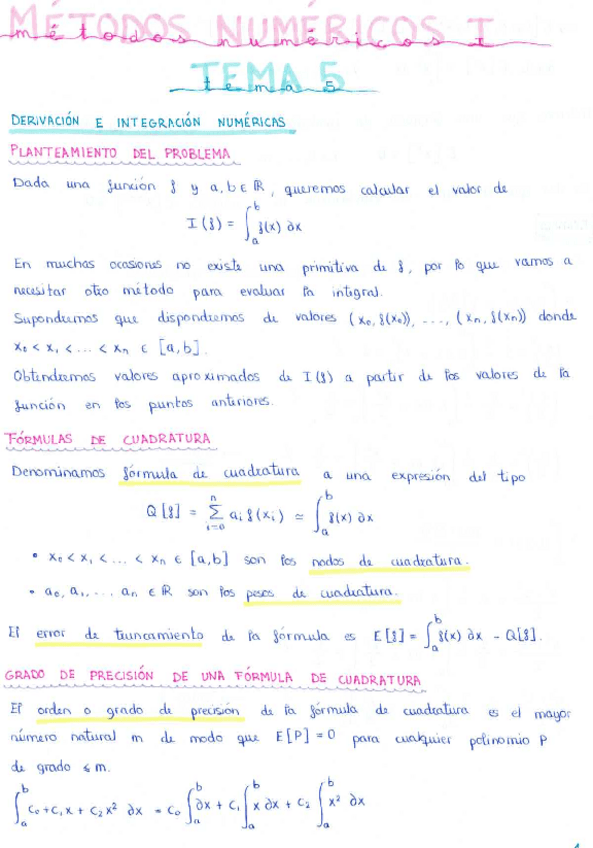 MÉTODOS NUMÉRICOS I
métodos numéricos I
TEMA 5
tema 5
DERIVACIÓN E INTEGRACIÓN NUMÉRICAS
PLANTEAMIENTO DEL PROBLEMA
Dada una función f y a, b ∈ ℝ, queremos calcular el valor de
I(f) = ∫_a^b f(x) ∂x
En muchas ocasiones no existe una primitiva de f, por lo que vamos a
necesitar otro método para evaluar la integral.
Supondremos que dispondremos de valores (x₀, f(x₀)), ..., (xₙ, f(xₙ)) donde
x₀ < x₁ < ... < xₙ ∈ [a, b].
Obtendremos valores aproximados de I(f) a partir de los valores de la
función en los puntos anteriores.
FÓRMULAS DE CUADRATURA
Denominamos fórmula de cuadratura a una expresión del tipo
Q[f] = Σ_{i=0}^n aᵢ f(xᵢ) ≃ ∫_a^b f(x) ∂x
• x₀ < x₁ < ... < xₙ ∈ [a, b] son los nodos de cuadratura.
• a₀, a₁, ... aₙ ∈ ℝ son los pesos de cuadratura.
El error de truncamiento de la fórmula es E[f] = ∫_a^b f(x) ∂x - Q[f].
GRADO DE PRECISIÓN DE UNA FÓRMULA DE CUADRATURA
El orden o grado de precisión de la fórmula de cuadratura es el mayor
número natural m de modo que E[P] = 0 para cualquier polinomio P
de grado ≤ m.
∫_a^b c₀ + c₁x + c₂x² ∂x = c₀ ∫_a^b ∂x + c₁ ∫_a^b x ∂x + c₂ ∫_a^b x² ∂x